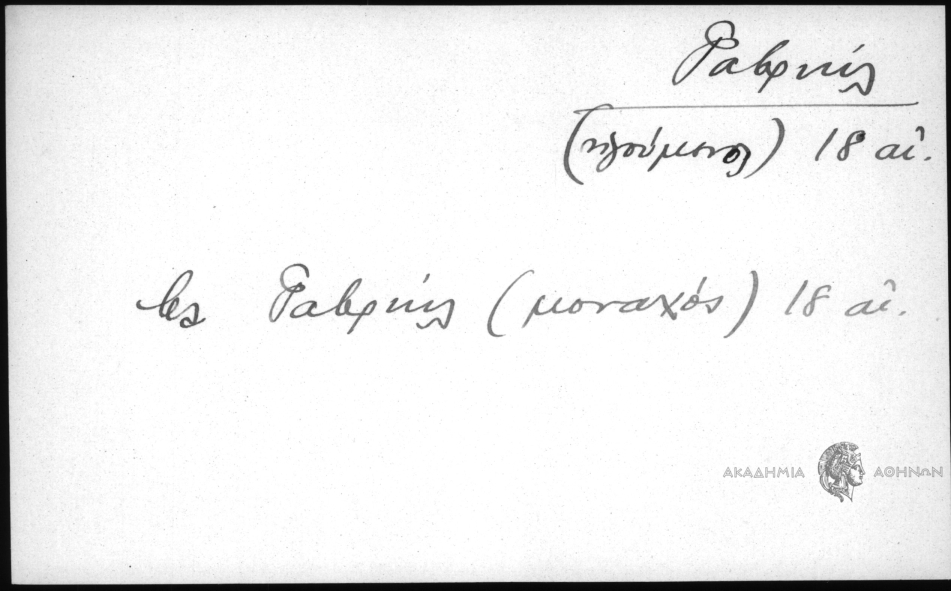 Γαβριήλ
(ηγούμενος) 18 αἰ.
βλ Γαβριήλ (μοναχός) 18 αἰ.
ΑΚΑΔΗΜΙΑ ΑΘΗΝΩΝ